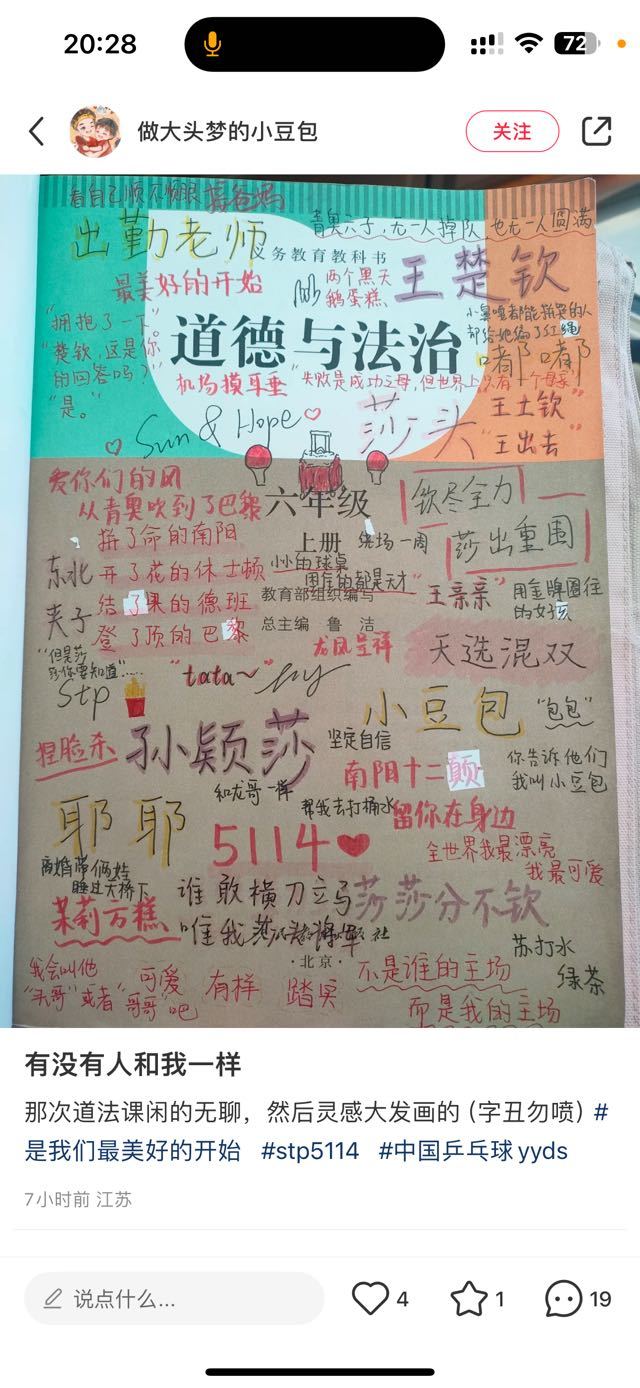 20:28
72
做大头梦的小豆包
关注
看自己顺不顺眼
出勤老师
青奥六子，无一人掉队 也无一人圆满
义务教育教科书
最美好的开始
两个黑天
鹅蛋糕、
王楚钦
“拥抱了一下。”
“楚钦，这是你
的回答吗？”
“是。”
道德与法治
都给她编了红绳
嘟嘟
机场摸耳垂
“失败是成功之母，但世界上只有一个母亲”
Sun & Hope
莎头
“王土钦”
“王出去”
爱你们的风
从青奥吹到了巴黎
六年级
上册
绕场一周
钦尽全力
莎出重围
拼了命的南阳
东北
开了花的休士顿
小小的球桌
困住的都是天才
夹子
结了果的德班
登了顶的巴黎
教育部组织编写
总主编 鲁洁
“王亲亲”
用金牌圈住
的女孩
龙凤呈祥
天选混双
“但是莎
莎你要知道”……
“tata~”
stp
小豆包
“包包”
捏脸杀
孙颖莎
坚定自信
南阳十二颠
你告诉他们
我叫小豆包
和龙哥一样
耶耶
帮我去打桶水
留你在身边
5114
全世界我最漂亮
我最可爱
离婚带俩娃
睡过天桥下
茉莉万糕
谁敢横刀立马
唯我莎头将军
社
莎莎分不钦
·北京·
苏打水
绿茶
我会叫他
“头哥”或者“哥哥”吧
可爱
有样
踏实
不是谁的主场
而是我的主场
有没有人和我一样
那次道法课闲的无聊，然后灵感大发画的（字丑勿喷）#
是我们最美好的开始 #stp5114 #中国乒乓球yyds
7小时前 江苏
说点什么...
4
1
19